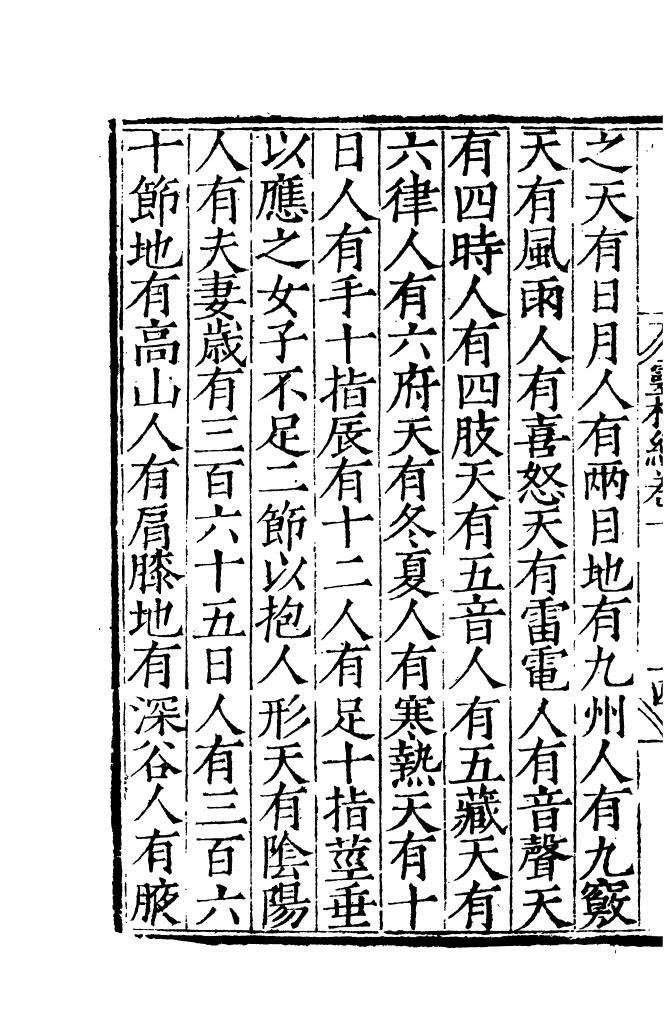 靈樞經卷
之天有日月人有兩目地有九州人有九竅
天有風雨人有喜怒天有雷電人有音聲天
有四時人有四肢天有五音人有五藏天有
六律人有六府天有冬夏人有寒熱天有十
日人有手十指辰有十二人有足十指莖垂
以應之女子不足二節以抱人形天有陰陽
人有夫妻歲有三百六十五日人有三百六
十節地有高山人有肩膝地有深谷人有腋